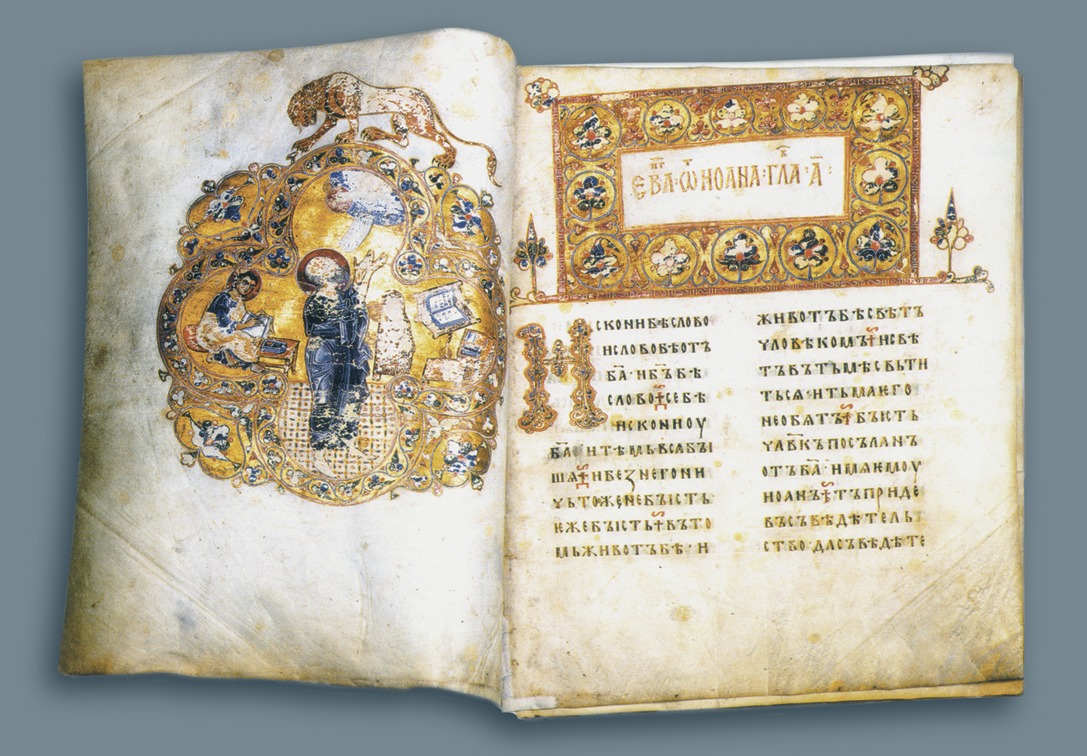 ЕВА·ѾИОАНА·ГЛА·А҃·
ИСКОНИБѢСЛОВО
ИСЛОВОБѢОТЪ
БА҃·ИБЪБѢ
СЛОВО·СЕБѢ
ИСКОНИОУ
БА҃·ИТѢМЬВСАБЫ
ШѦ·ИБЕЗНЕГОНИ
ЧЬТОЖЕНЕБЫСТЬ·
ЕЖЕБЫСТЬ·ВЪТО
МЬЖИВОТЪБѢ·И
ЖИВОТЪБѢСВѢТЪ
ЧЛОВѢКОМЪ·ИСВѢ
ТЪВЪТЬМѢСВЬТИ
ТЬСѦ·ИТЬМАѤГО
НЕОБѦТЪ·БЫСТЬ
ЧЛВКЪПОСЪЛАНЪ
ОТЪБА҃·ИМѦѤМОУ
ИОАНЪ·ТЪПРИДЕ
ВЪСЪВѢДѢТЕЛЬ
СТВО·ДАСЪВѢДѢТЕ